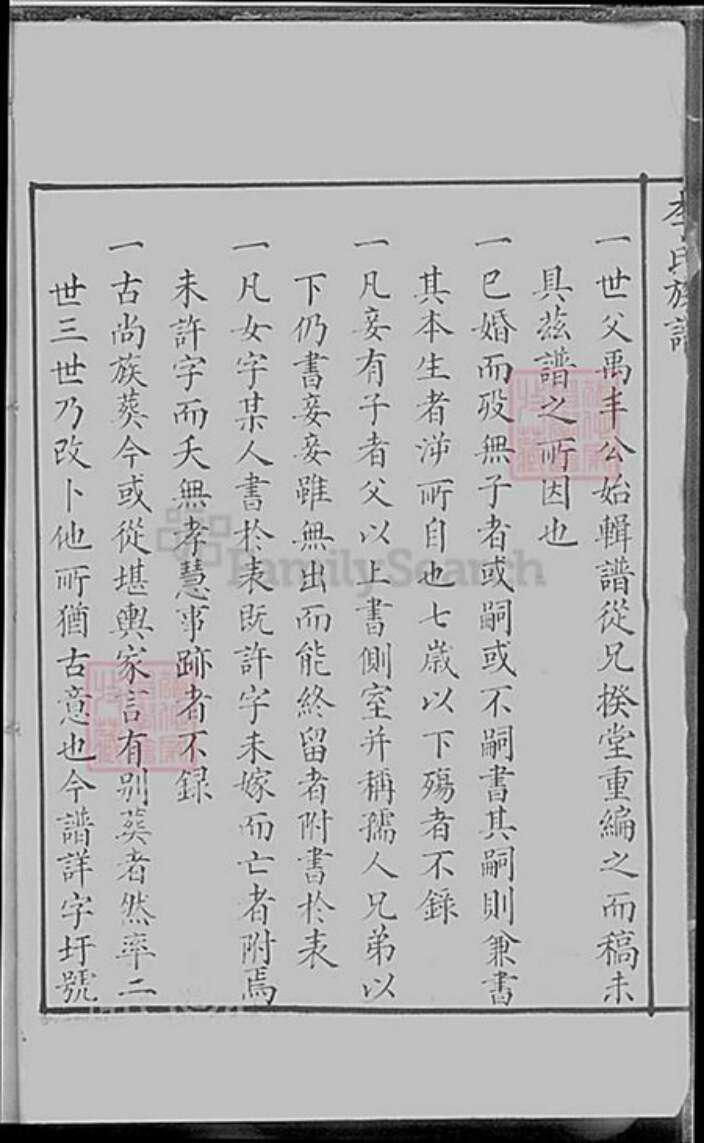 李氏族譜
一世父禹丰公始輯譜從兄揆堂重編之而稿未
具茲譜之所因也
一已婚而歿無子者或嗣或不嗣書其嗣則兼書
其本生者淛所自也七歲以下殤者不錄
一凡妾有子者父以上書側室并稱孺人兄弟以
下仍書妾妾雖無出而能終留者附書於表
一凡女字某人書於表既許字未嫁而亡者附焉
未許字而夭無孝慧事跡者不録
一古尚族葬今或從堪輿家言有別葬者然率二
世三世乃改卜他所猶古意也今譜詳字圩號
FamilySearch